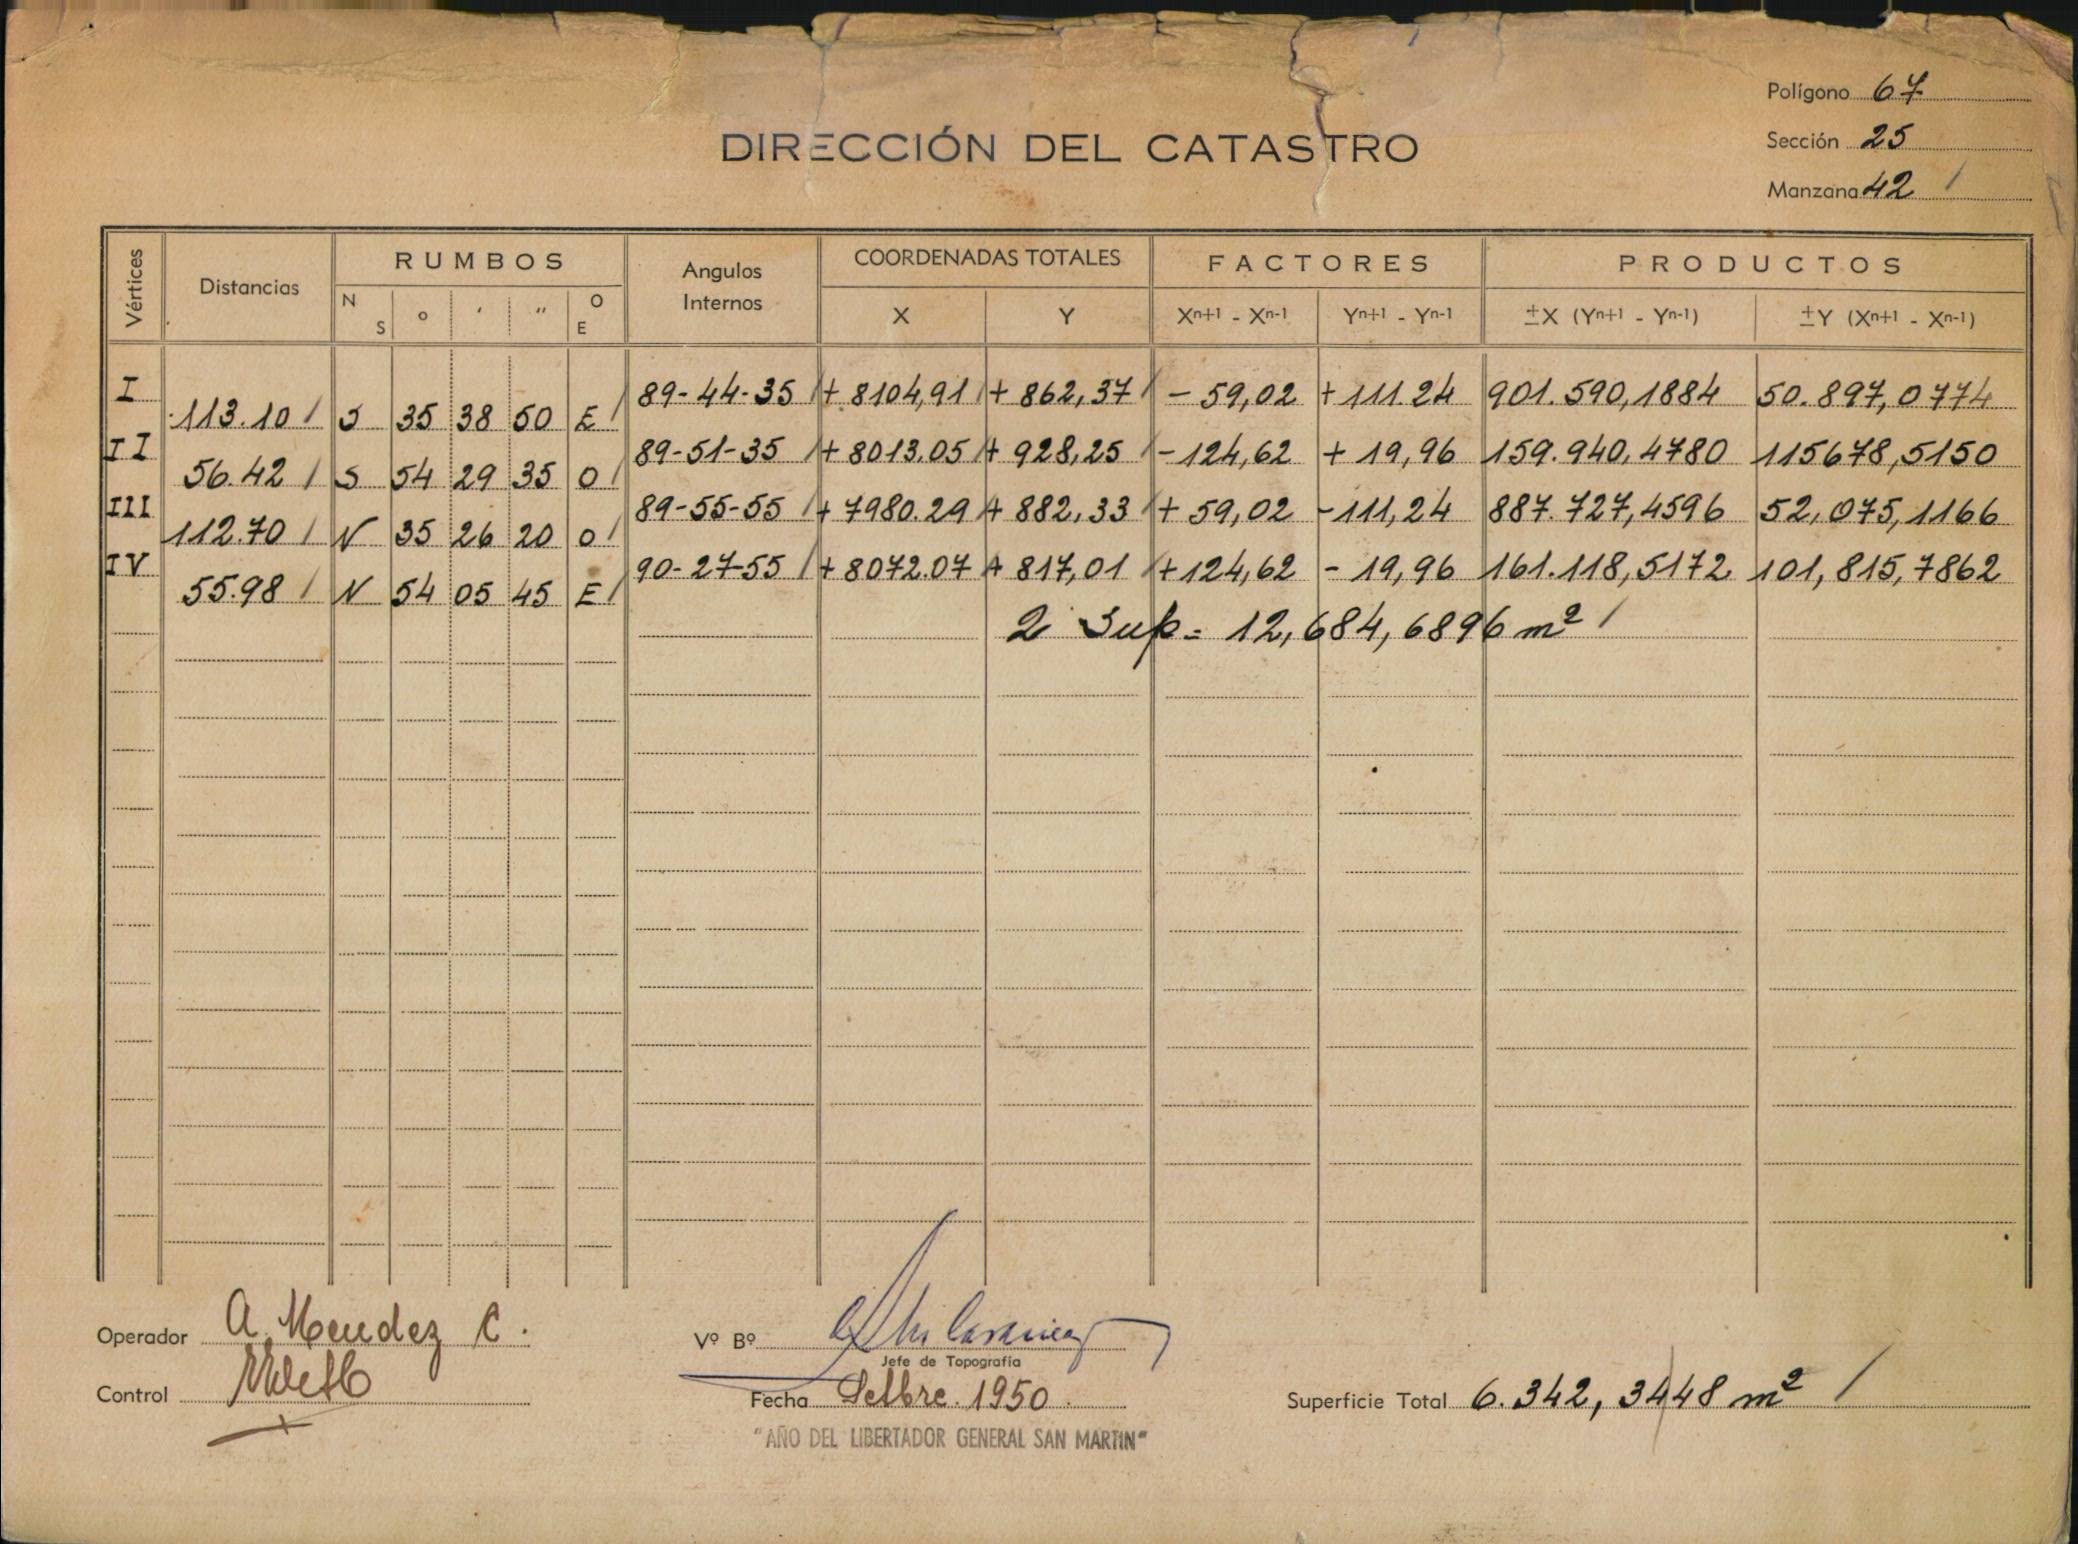 Polígono 67
DIRECCIÓN DEL CATASTRO
Sección 25
Manzana 42 /
Vértices Distancias RUMBOS Angulos Internos COORDENADAS TOTALES FACTORES PRODUCTOS
N S ° ' " O E X Y Xn+1 - Xn-1 Yn+1 - Yn-1 ±X (Yn+1 - Yn-1) ±Y (Xn+1 - Xn-1)
I 89-44-35 / + 8104,91 / + 862,37 / - 59,02 + 111.24 901.590,1884 50.897,0774
113.10 / S 35 38 50 E /
II 89-51-35 / + 8013.05 / + 928,25 / - 124,62 + 19,96 159.940,4780 115678,5150
56.42 / S 54 29 35 O /
III 89-55-55 / + 7980.29 + 882,33 / + 59,02 - 111,24 887.727,4596 52,075,1166
112.70 / N 35 26 20 O /
IV 90-27-55 / + 8072.07 + 817,01 / + 124,62 - 19,96 161.118,5172 101,815,7862
55.98 / N 54 05 45 E /
2 Sup = 12,684,6896 m² /
Operador A. Mendez C.
Vº Bº
Jefe de Topografía
Control
Fecha Setbre. 1950
Superficie Total 6.342, 3448 m² /
"AÑO DEL LIBERTADOR GENERAL SAN MARTIN"